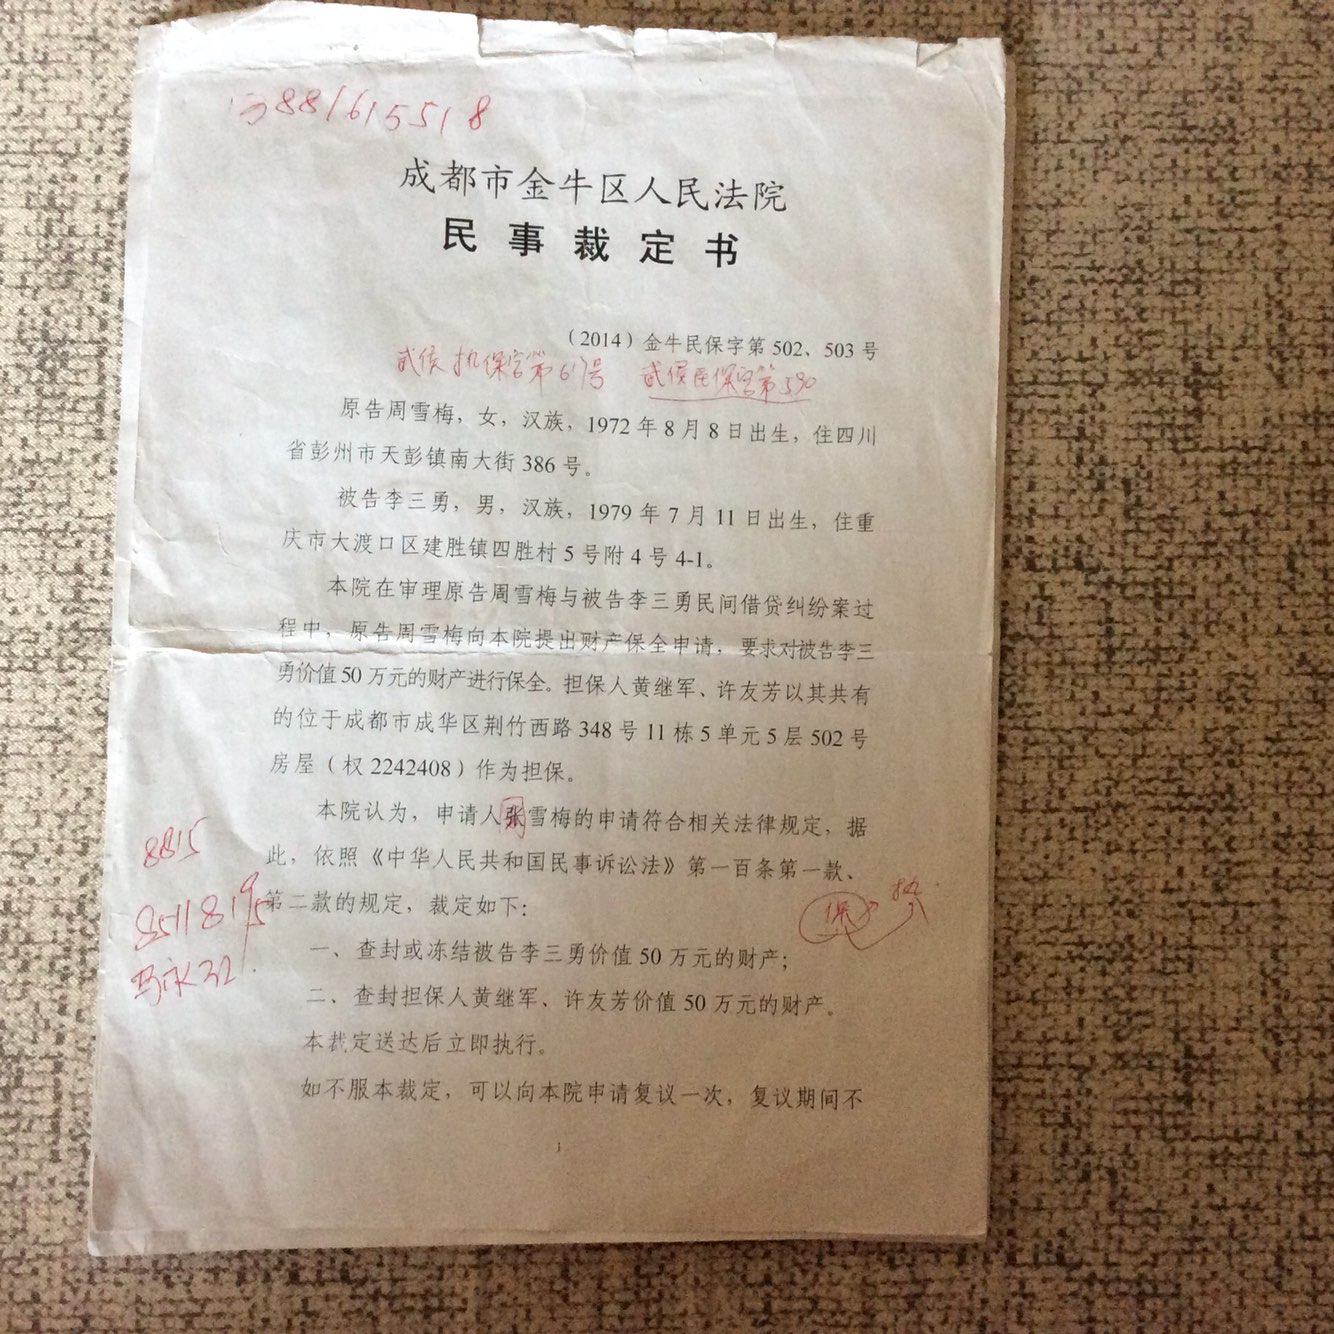 13881615518
成都市金牛区人民法院
民事裁定书
（2014）金牛民保字第502、503号
武侯执保字第617号 武侯民保字第590
原告周雪梅，女，汉族，1972年8月8日出生，住四川
省彭州市天彭镇南大街386号。
被告李三勇，男，汉族，1979年7月11日出生，住重
庆市大渡口区建胜镇四胜村5号附4号4-1。
本院在审理原告周雪梅与被告李三勇民间借贷纠纷案过
程中，原告周雪梅向本院提出财产保全申请，要求对被告李三
勇价值50万元的财产进行保全。担保人黄继军、许友芳以其共有
的位于成都市成华区荆竹西路348号11栋5单元5层502号
房屋（权2242408）作为担保。
本院认为，申请人张雪梅的申请符合相关法律规定，据
此，依照《中华人民共和国民事诉讼法》第一百条第一款、
第二款的规定，裁定如下：
一、查封或冻结被告李三勇价值50万元的财产；
二、查封担保人黄继军、许友芳价值50万元的财产。
本裁定送达后立即执行。
如不服本裁定，可以向本院申请复议一次，复议期间不
1
8815
保 执